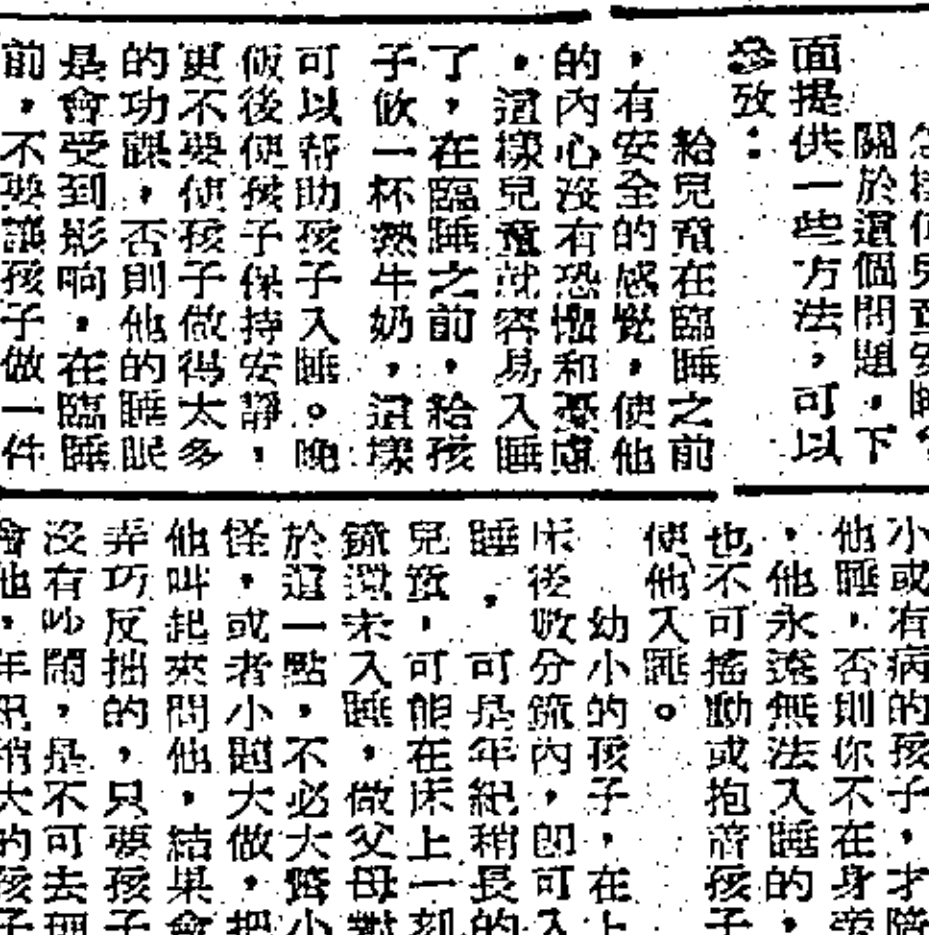 關於這個問題，下
面提供一些方法，可以
參攷：
給兒童在臨睡之前
，有安全的感覺，使他
的內心沒有恐懼和憂慮
，這樣兒童就容易入睡
了，在臨睡之前，給孩
子飲一杯熱牛奶，這樣
可以帮助孩子入睡。晚
飯後使孩子保持安靜，
更不要使孩子做得太多
的功課，否則他的睡眠
是會受到影响，在臨睡
前，不要讓孩子做一件
小或有病的孩子，才陪
他睡，否則你不在身旁
，他永遠無法入睡的，
也不可搖動或抱著孩子
使他入睡。
幼小的孩子，在上
床後數分鐘內，即可入
睡，可是年紀稍長的
兒童，可能在床上一刻
鐘還未入睡，做父母對
於這一點，不必大驚小
怪，或者小題大做，把
他叫起來問他，結果會
弄巧反拙的，只要孩子
沒有吵鬧，是不可去理
會他，年紀稍大的孩子